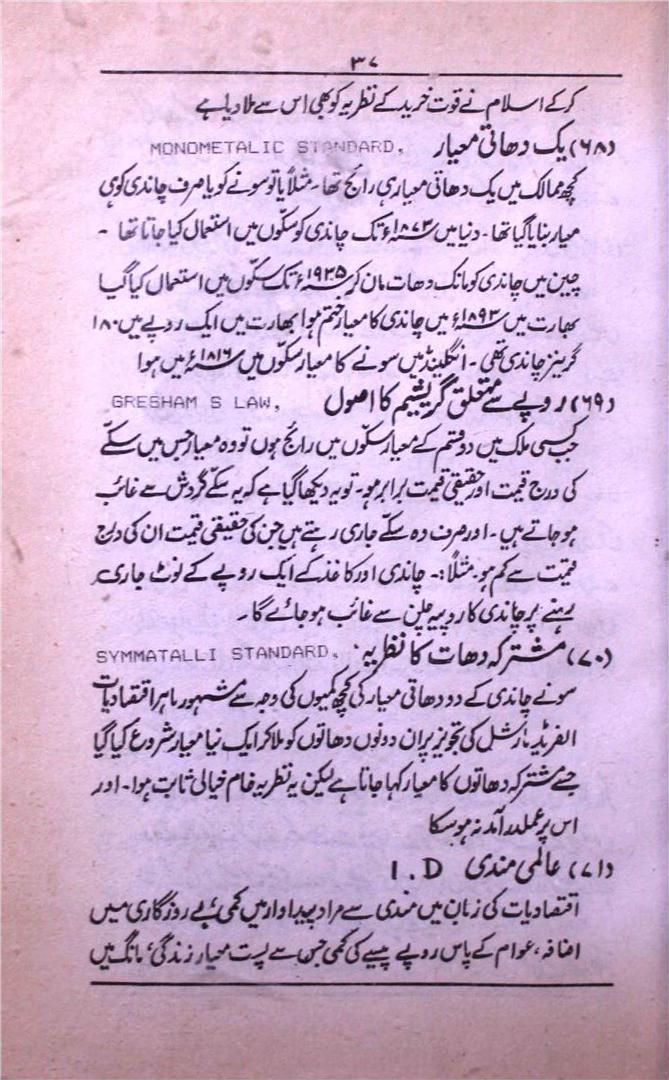 ۳۷
کرکے اسلام نے قوت خرید کے نظریہ کو بھی اس سے ملا دیا ہے
(۶۸) یک دھاتی معیار MONOMETALIC STANDARD,
کچھ ممالک میں یک دھاتی معیار ہی رائج تھا۔ مثلاً یا تو سونے کو یا صرف چاندی کو ہی
معیار بنایا گیا تھا۔ دنیا میں ۱۸۷۳ء تک چاندی کو سکّوں میں استعمال کیا جاتا تھا ۔
چین میں چاندی کو مانک دھات مان کر ۱۹۳۵ء تک سکّوں میں استعمال کیا گیا
بھارت میں ۱۸۹۳ء میں چاندی کا معیار ختم ہوا بھارت میں ایک روپے میں ۱۸۰
گرینز چاندی تھی۔ انگلینڈ میں سونے کا معیار سکّوں میں ۱۸۱۶ء میں ہوا
(۶۹) روپے سے متعلق گریشیم کا اصول GRESHAM S LAW,
جب کسی ملک میں دو قسم کے معیار سکّوں میں رائج ہوں تو وہ معیار جس میں سکّے
کی درج قیمت اور حقیقی قیمت برابر ہو۔ تو یہ دیکھا گیا ہے کہ یہ سکّے گردش سے غائب
ہو جاتے ہیں ۔ اور صرف وہ سکّے جاری رہتے ہیں جن کی حقیقی قیمت ان کی درج
قیمت سے کم ہو۔ مثلاً:۔ چاندی اور کاغذ کے ایک روپے کے نوٹ جاری
رہنے پر چاندی کا روپیہ چلن سے غائب ہو جائے گا۔
(۷۰) مشترکہ دھات کا نظریہ SYMMATALLI STANDARD.
سونے چاندی کے دو دھاتی معیار کی کچھ کمیوں کی وجہ سے مشہور ماہر اقتصادیات
الفریڈ مارشل کی تجویز پر ان دونوں دھاتوں کو ملا کر ایک نیا معیار شروع کیا گیا
جسے مشترکہ دھاتوں کا معیار کہا جاتا ہے لیکن یہ نظریہ خام خیالی ثابت ہوا۔ اور
اس پر عملدرآمد نہ ہو سکا
(۷۱) عالمی مندی I.D
اقتصادیات کی زبان میں مندی سے مراد پیداوار میں کمی، بے روزگاری میں
اضافہ، عوام کے پاس روپے پیسے کی کمی جس سے پست معیار زندگی، مانگ میں